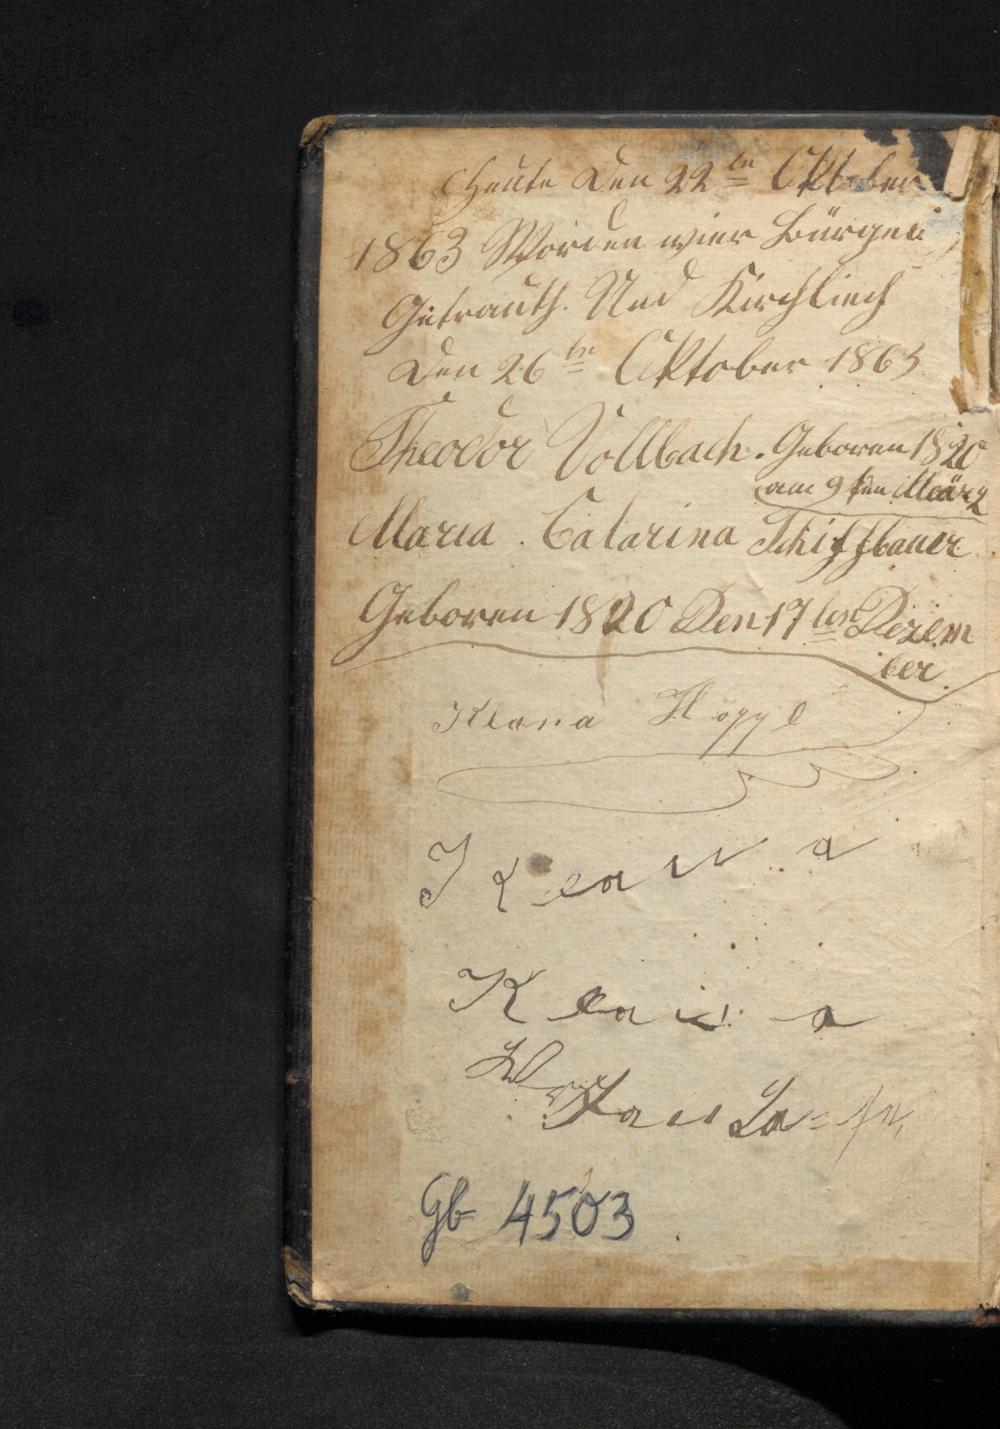 Heute Den 22 tn Oktober
1863 Worden wier Bürger
Getrauth. Und Kirchliech
Den 26 tn Oktober 1863
Theodor Vollbach. Geboren 1820
am 9 ten März
Maria. Catarina Schiffbauer
Geboren 1820 Den 17 ten Dezem
ber
Klara
K
Gb 4503